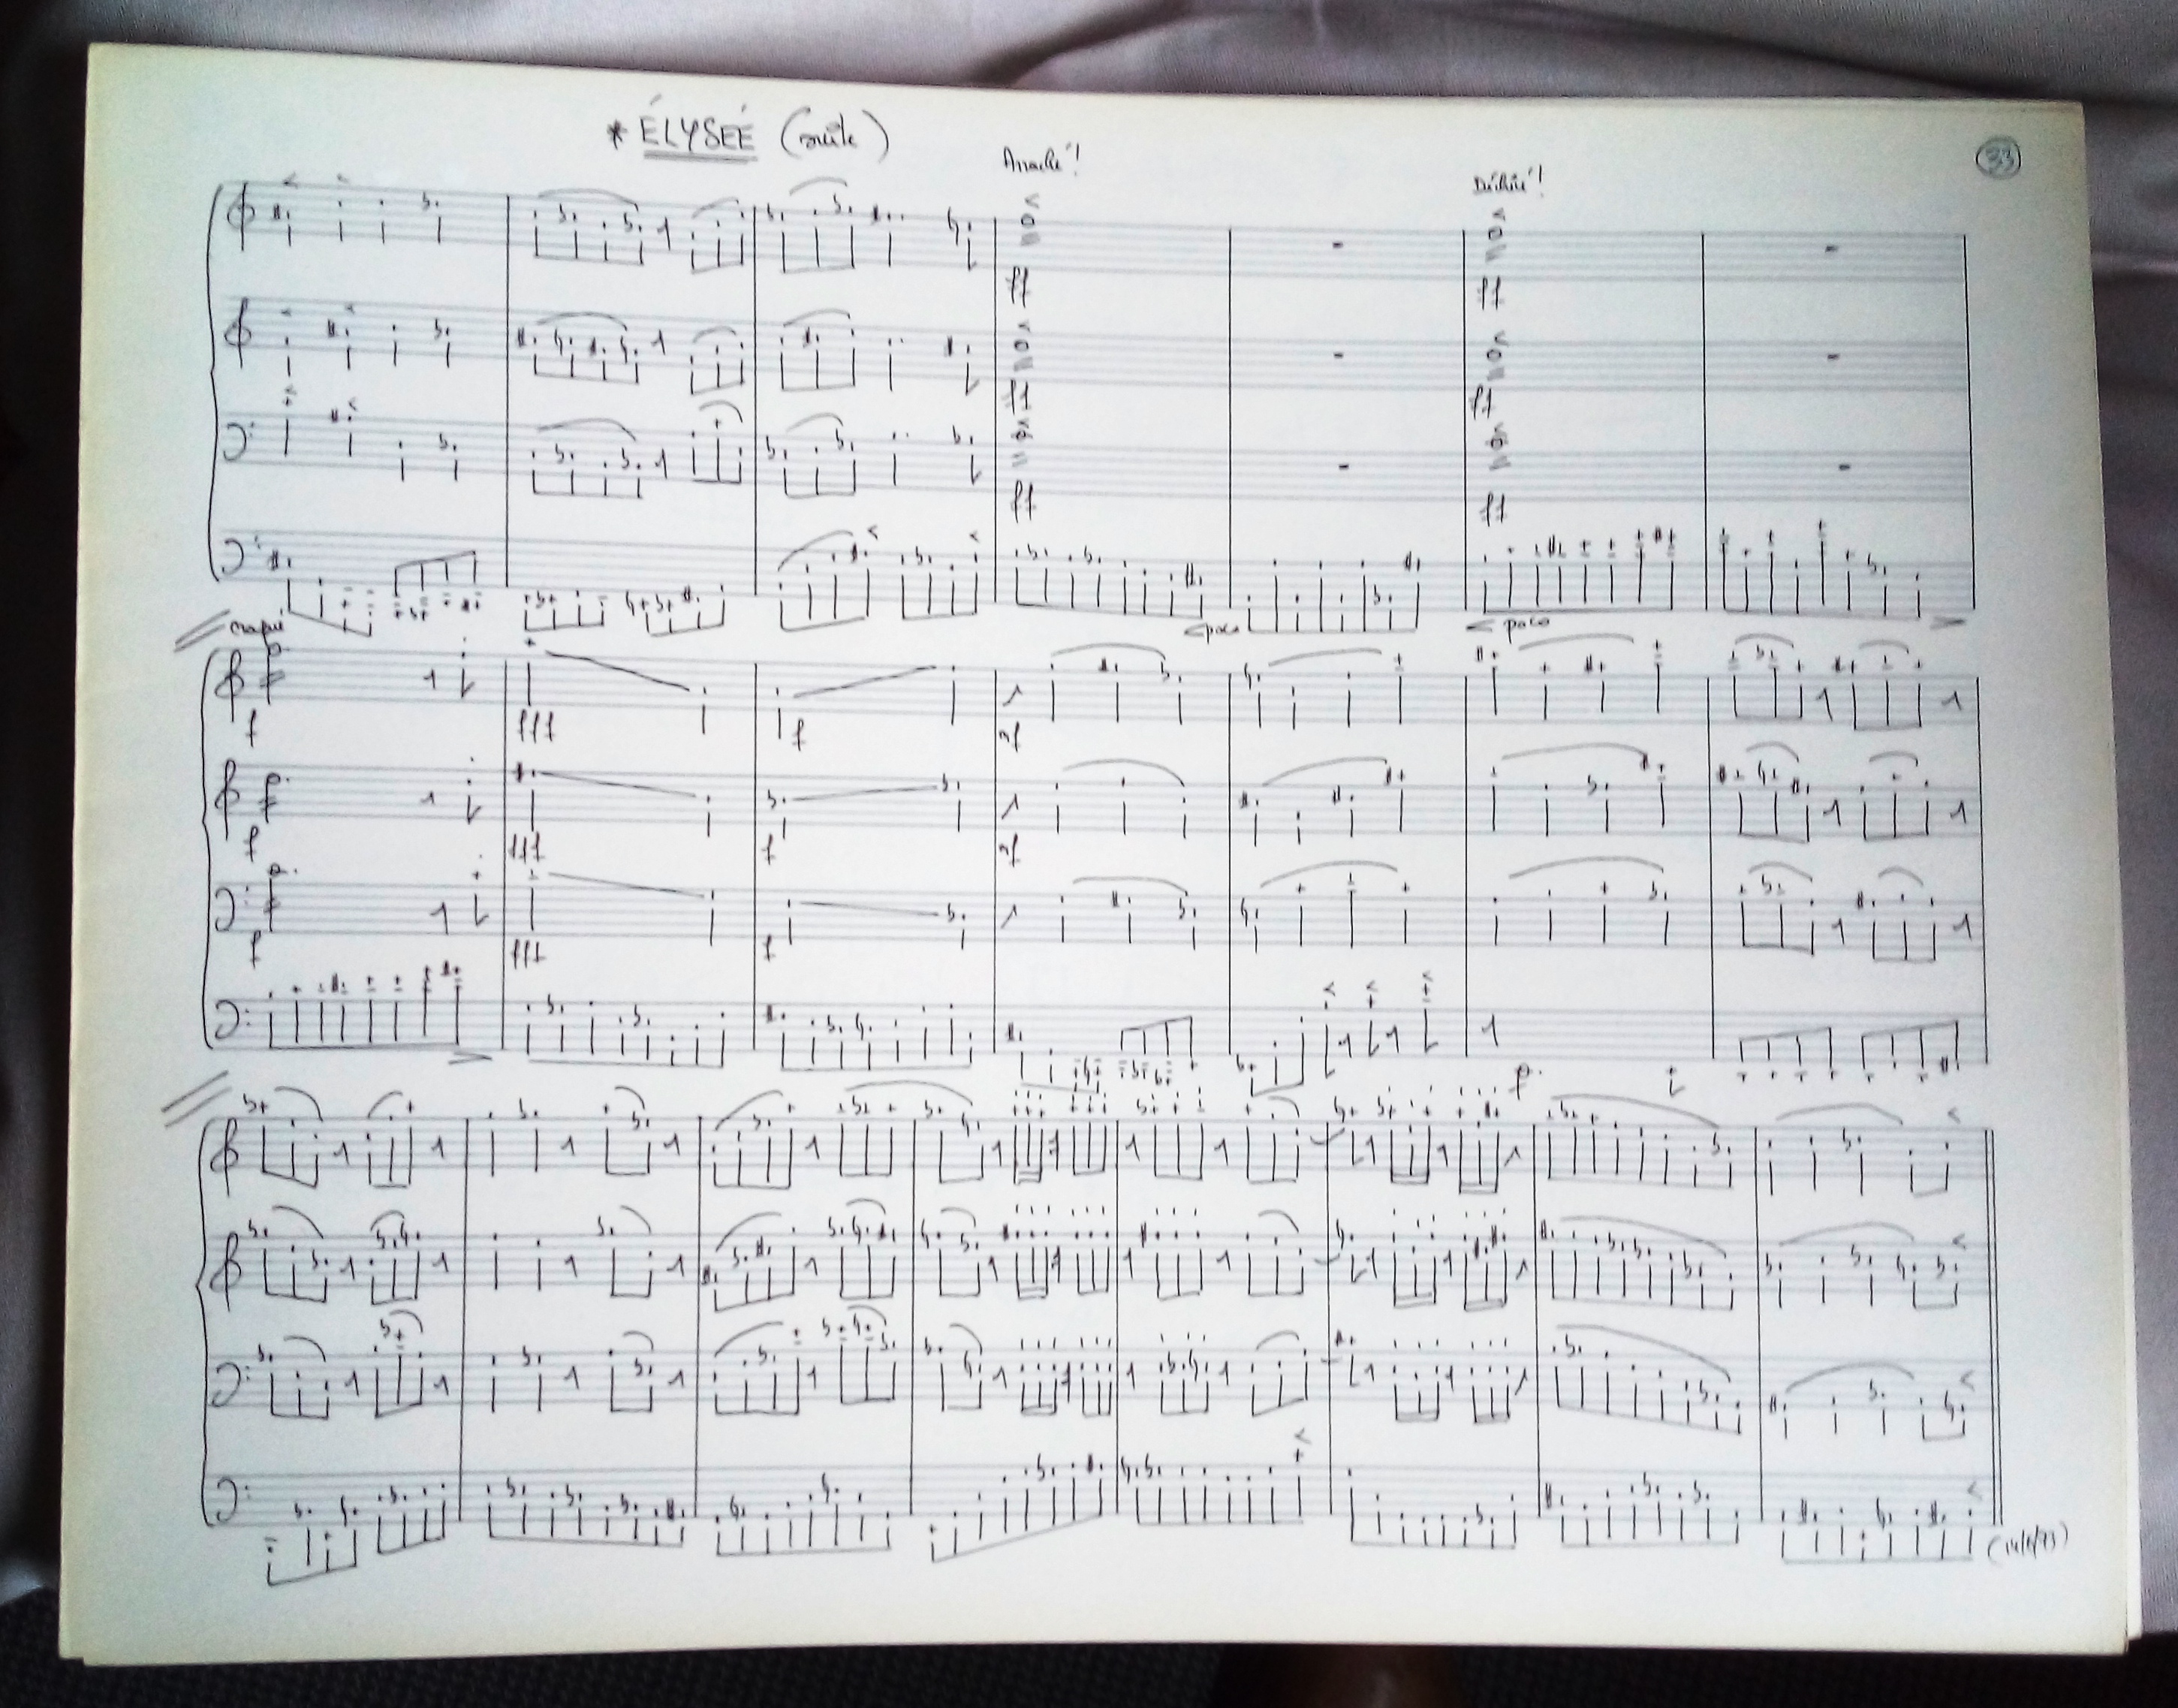 * ÉLYSEÉ (suite)
33
Arraché !
Déchiré !
ff ff
ff ff
ff ff
<poco < poco
f fff f mf
f fff f mf
f fff f